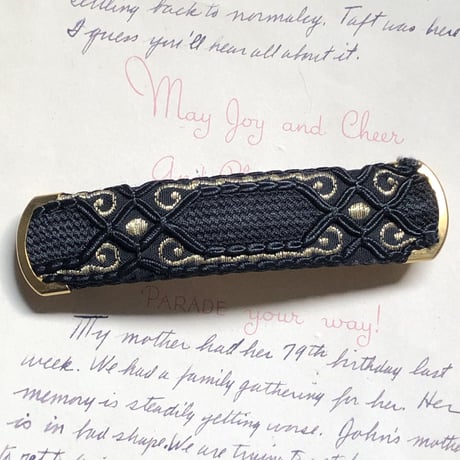 settling back to normalcy. Taft was here
I guess you'll hear all about it.
May Joy and Cheer
PARADE your way!
My mother had her 79th birthday last
week. We had a family gathering for her. Her
memory is steadily getting worse. John's mother
is in bad shape. We are trying to